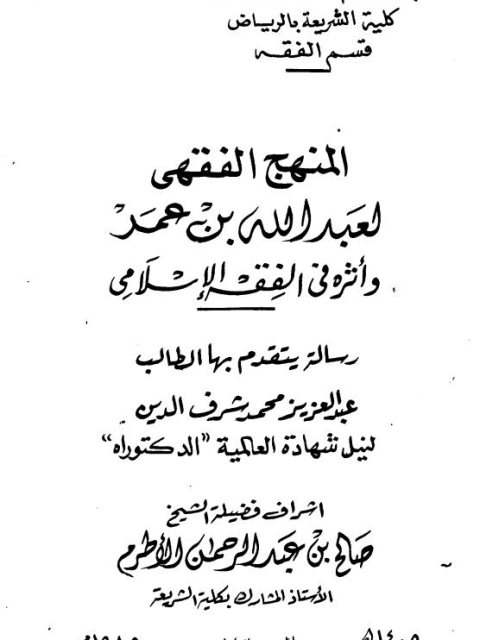 كلية الشريعة بالرياض
قسم الفقه
المنهج الفقهى
لعبد الله بن عمر
وأثره فى الفقه الإسلامى
رسالة يتقدم بها الطالب
عبد العزيز محمد شرف الدين
لنيل شهادة العالمية "الدكتوراه"
اشراف فضيلة الشيخ
صَالح بنْ عَبد الرحمن الأطرم
الأستاذ المشارك بكلية الشريعة